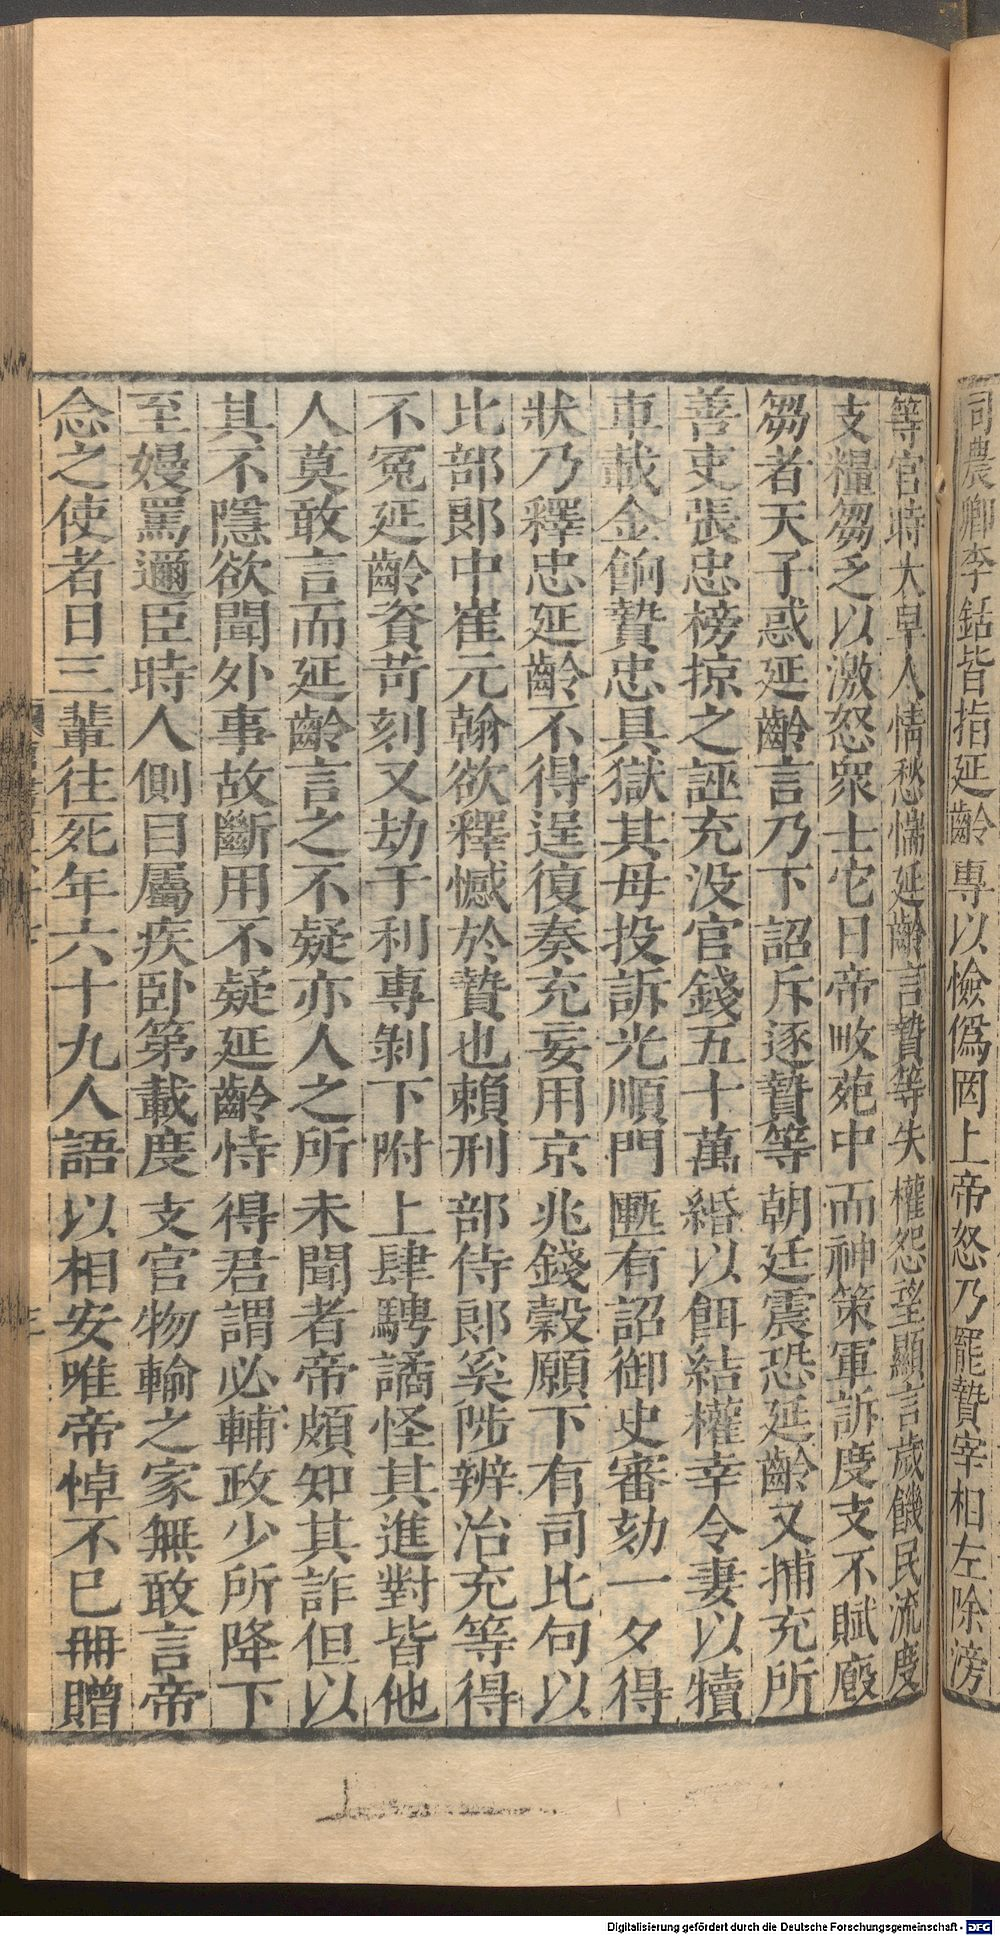 司農卿李銛皆指延齡專以憸僞罔上帝怒乃罷贄宰相左除滂
等官時大旱人情愁惴延齡言贄等失權怨望顯言歲饑民流度
支糧芻乏以激怒衆士它日帝畋苑中而神策軍訴度支不賦廏
芻者天子惑延齡言乃下詔斥逐贄等朝廷震恐延齡又捕充所
善吏張忠榜掠之誣充没官錢五十萬緡以餌結權幸令妻以犢
車載金餉贄忠具獄其母投訴光順門匭有詔御史審劾一夕得
狀乃釋忠延齡不得逞復奏充妄用京兆錢穀願下有司比句以
比部郎中崔元翰欲釋憾於贄也賴刑部侍郎奚陟辨治充等得
不冤延齡資苛刻又劫于利專剝下附上肆騁譎怪其進對皆他
人莫敢言而延齡言之不疑亦人之所未聞者帝頗知其詐但以
其不隱欲聞外事故斷用不疑延齡恃得君謂必輔政少所降下
至嫚罵邇臣時人側目屬疾臥第載度支官物輸之家無敢言帝
念之使者日三輩往死年六十九人語以相安唯帝悼不已冊贈
Digitalisierung gefördert durch die Deutsche Forschungsgemeinschaft - DFG